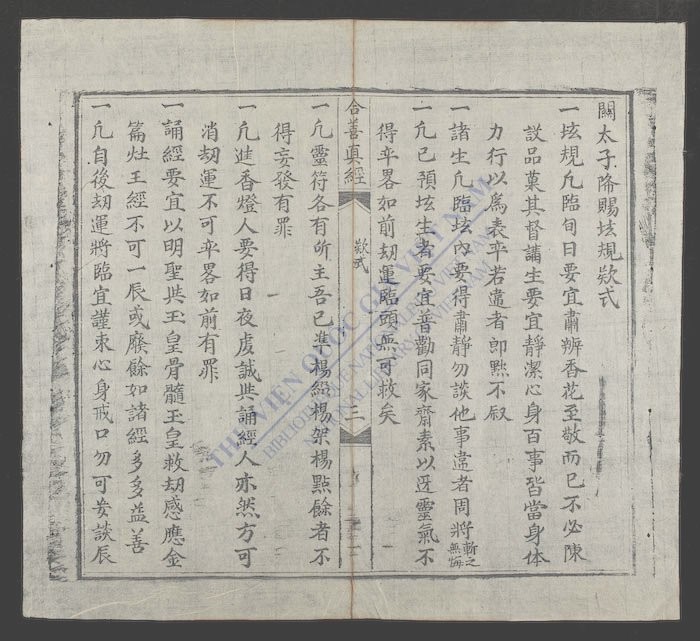 關太子降賜坛規欵式
一坛規凢臨旬日要宜肅辦香花至敬而已不必陳
設品菓其督講生要宜静潔心身百事皆當身体
力行以爲表卒若違者即㸃不叙
一諸生凢臨坛内要得肅静勿談他事違者周將斬之無悔
一凢已預坛生者要宜普勸同家齋素以迓靈氣不
得卒畧如前刼運臨頭無可救矣
合善真經
欵式
三
一凢靈符各有所主吾已准楊紛楊架楊㸃餘者不
得妄發有罪
一凢進香燈人要得日夜虔誠與誦經人亦然方可
消刼運不可卒畧如前有罪
一誦經要宜以明聖與玉皇骨髓玉皇救刼感應金
篇灶王經不可一辰或廢餘如諸經多多益善
一凢自後刼運將臨宜謹束心身戒口勿可妄談辰
THƯ VIỆN QUỐC GIA VIỆT NAM
BIBLIOTHEQUE NATIONALE DU VIETNAM
NATIONAL LIBRARY OF VIETNAM